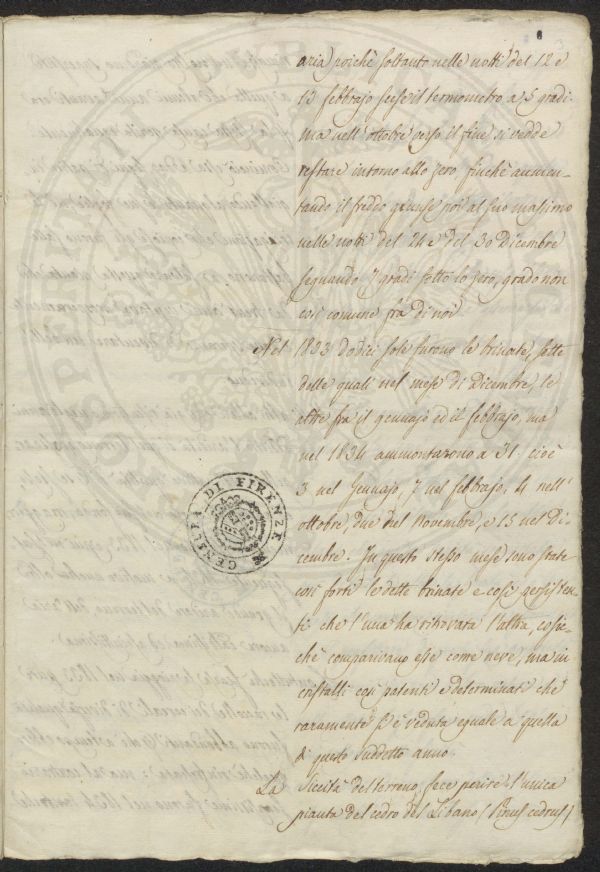 aria poichè soltanto nelle notti del 12 e
13 febbrajo scese il termometro a 5 gradi.
ma nell'ottobre verso il fine si vedde
restare intorno allo zero finchè aumen-
tando il freddo giunse poi al suo massimo
nelle notti del 24 e del 30 Dicembre
segnando 7 gradi sotto lo zero, grado non
così comune frà di noi
Nel 1833 dodici sole furono le brinate, sette
delle quali nel mese di Dicembre, le
altre fra il gennajo ed il febbrajo, ma
nel 1834 ammontarono a 31. cioè
3 nel Gennajo, 7 nel febbrajo, 4 nell'
ottobre, due del Novembre, e 15 nel Di-
cembre. In questo stesso mese sono state
così forti le dette brinate e così persisten-
ti che l'una ha ritrovata l'altra, cosic-
chè comparivano esse come neve, ma in
cristalli così patenti e determinati che
raramente si è veduta eguale a quella
di questo suddetto anno.
La Siccità del terreno, fece perire l'unica
pianta del cedro del Libano (Pinus cedrus)
CENSURA DI FIRENZE